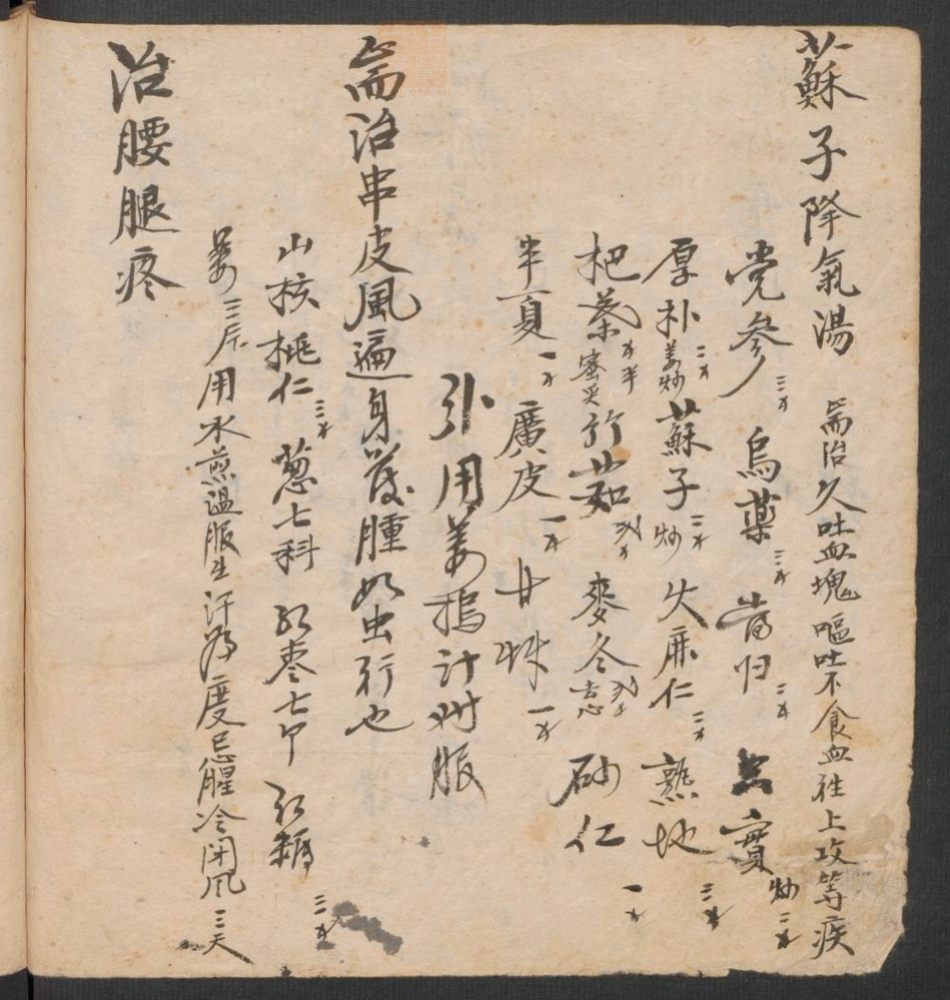 蘇子降氣湯 耑治久吐血塊嘔吐不食血往上攻等疾
党參三才 烏薬三才 當归二才 只實炒二才
厚朴姜炒二才 蘇子炒二才 火麻仁二才 熟地三才
杷葉蜜炙才半 竹茹刄才 麥冬去心刄才 砂仁一才
半夏一才 廣皮一才 甘艸一才
引用姜搗汁对服
耑治串皮風遍身發腫如虫行也
山核桃仁三才 葱七科 红枣七个 红糖三才
姜三斤 用水煎温服生汗為度忌腥冷闭風三天
治腰腿疼